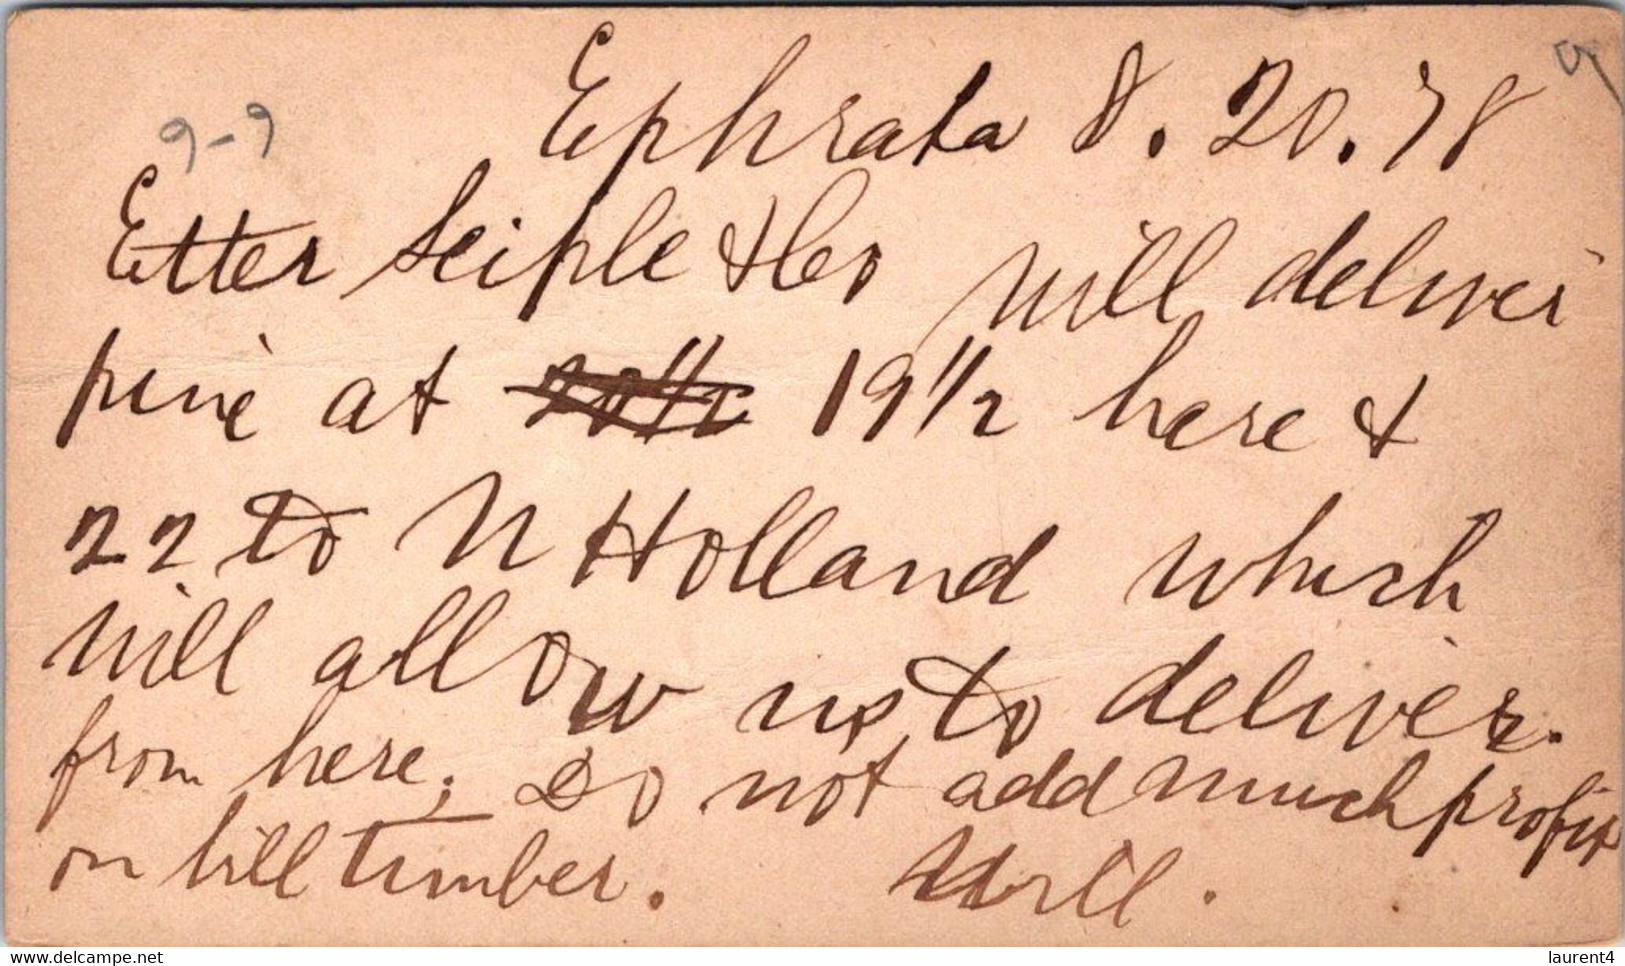 Ephrata 8. 20. 78
9-9
Etter Seiple & Co will deliver
pine at 20 1/2 19 1/2 here &
22 to N Holland which
will allow us to deliver.
from here; Do not add much profit
on bill timber. Will.
www.delcampe.net
laurent4